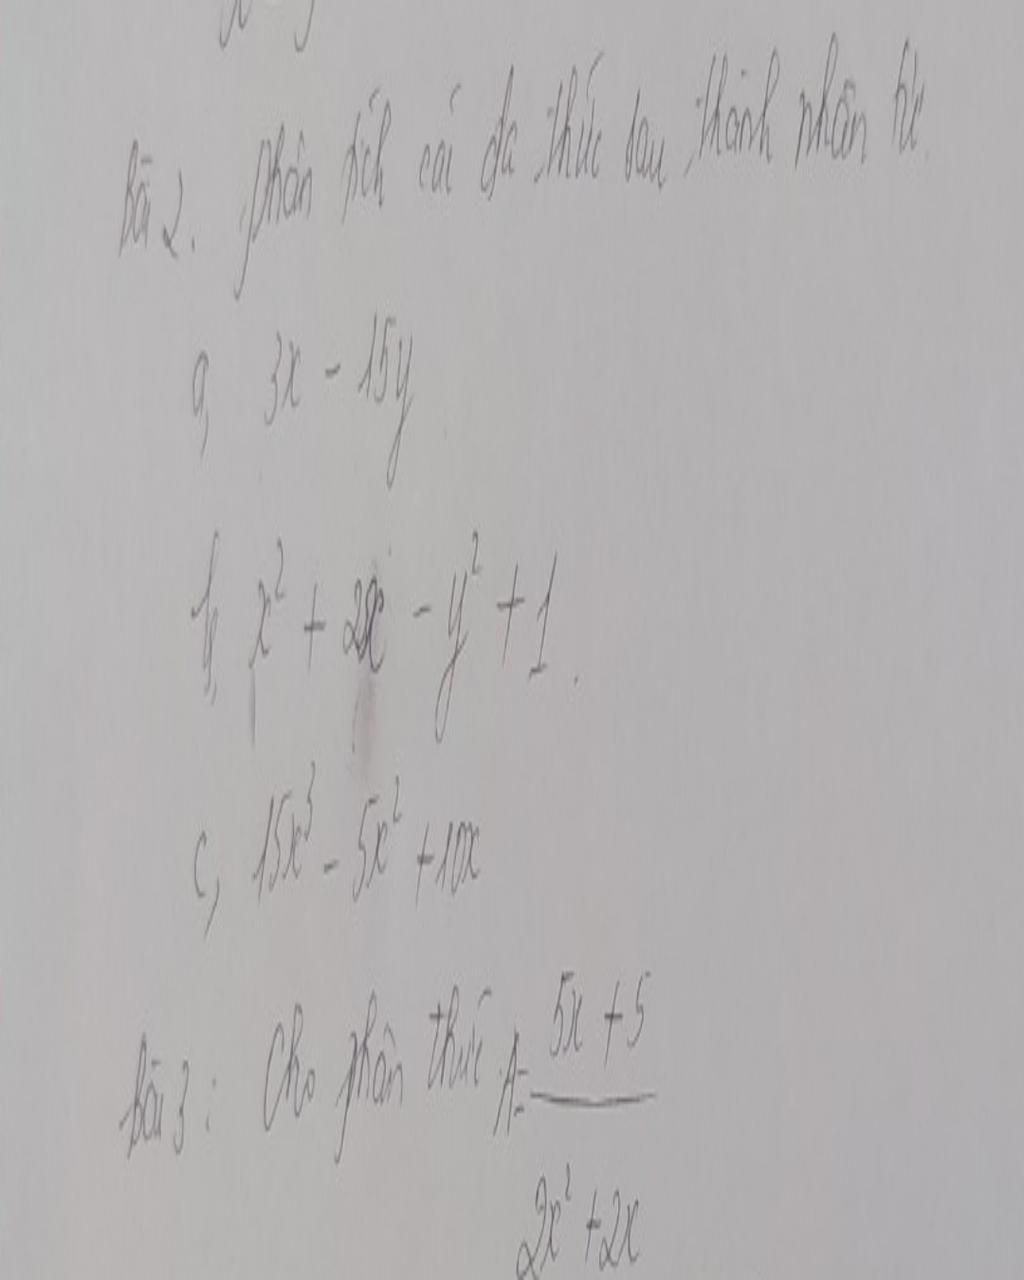 Bài 2. phân tích các đa thức sau thành nhân tử.
a, 3x - 15y
b, x² + 2x - y² + 1.
c, 15x³ - 5x² + 10x
Bài 3: Cho phân thức A = 5x + 5
2x² + 2x